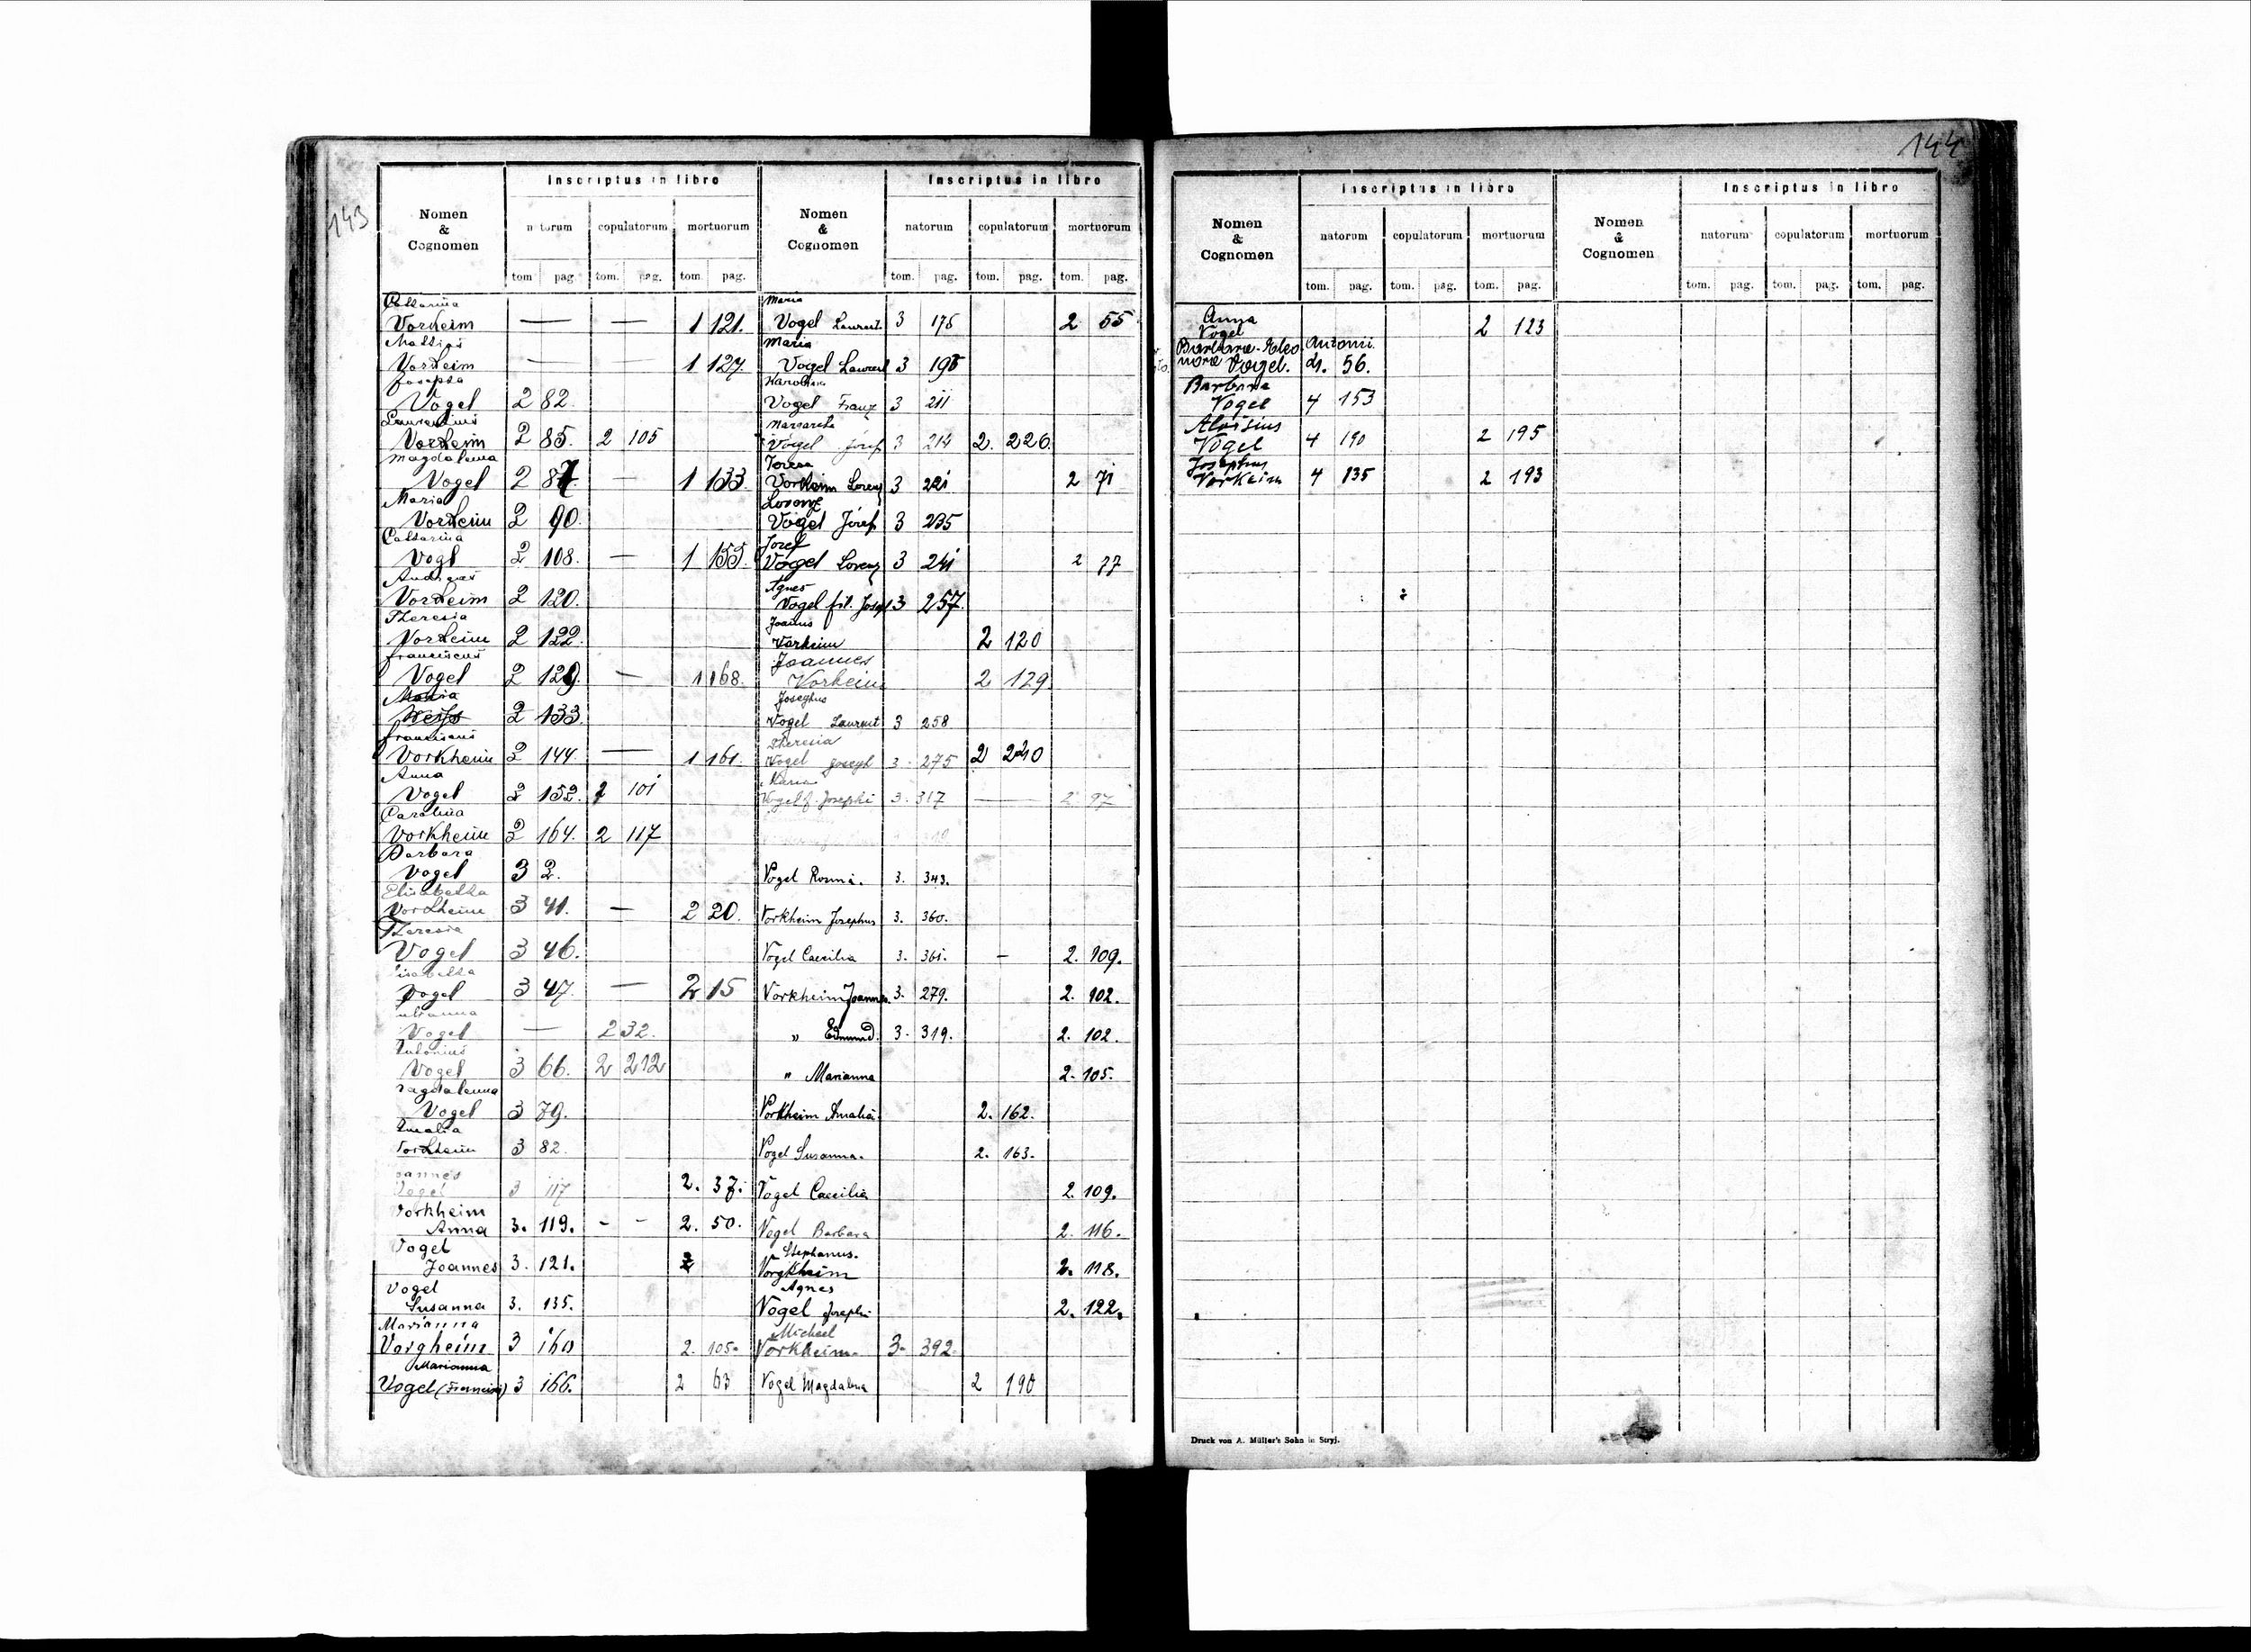 143
Inscriptus in libro
Nomen & Cognomen
natorum copulatorum mortuorum
tom. pag. tom. pag. tom. pag.
Catharina
Vorkheim — — 1 121.
Mathias
Vorkheim — — 1 127.
Josepha
Vogel 2 82.
Laurentius
Vorkheim 2 85. 2 105
Magdalena
Vogel 2 87. — 1 133.
Maria
Vorkheim 2 90.
Catharina
Vogl 2 108. — 1 155.
Andreas
Vorkheim 2 120.
Theresia
Vorkheim 2 122.
Franciscus
Vogel 2 129. — 1 168.
Maria
Weiss 2 133.
Franciscus
Vorkheim 2 144. — 1 161.
Anna
Vogel 2 152. 2 101
Carolina
Vorkheim 2 164. 2 117
Barbara
Vogel 3 2.
Elisabetha
Vorkheim 3 41. — 2 20.
Theresia
Vogel 3 46.
Elisabetha
Vogel 3 47. — 2 15
Vogel — 2 32.
Antonius
Vogel 3 66. 2 212
Magdalenna
Vogel 3 79.
Amalia
Vorkheim 3 82.
Joannes
Vogel 3 117 2. 37.
Vorkheim
Anna 3. 119. - - 2. 50.
Vogel
Joannes 3. 121. 2
Vogel
Susanna 3. 135.
Marianna
Vorgheim 3 160 2. 105.
Marianna
Vogel (Francisci) 3 166. 2 63
Inscriptus in libro
Nomen & Cognomen
natorum copulatorum mortuorum
tom. pag. tom. pag. tom. pag.
Maria
Vogel Laurent. 3 175 2 55
Maria
Vogel Laurent 3 195
Karolina
Vogel Franz 3 211
Margareta
Vogel Józef 3 214 2. 226.
Teresa
Vorkheim Lorenz 3 221 2 71
Lorenz
Vogel Józef 3 235
Jozef
Vogel Lorenz 3 241 2 77
Agnes
Vogel fil. Josef 3 257.
Joannes
Vorkheim 2 120
Joannes
Vorheim 2 129
Josephus
Vogel Laurent 3 258
Theresia
Vogel Joseph 3. 275 2 240
Maria
Vogel f. Josephi 3. 317 — 2. 97
Vogel Rosina. 3. 343.
Vorkheim Josephus 3. 360.
Vogel Caecilia 3. 361. - 2. 109.
Vorkheim Joannes. 3. 279. 2. 102.
" Edmund. 3. 319. 2. 102.
" Marianna 2. 105.
Vorkheim Amalia. 2. 162.
Vogel Susanna. 2. 163.
Vogel Caecilia 2. 109.
Vogel Barbara 2. 116.
Stephanus.
Vorgkheim 2. 118.
Agnes
Vogel Josephi 2. 122.
Michael
Vorkheim. 3. 392.
Vogel Magdalena 2 190
144
Inscriptus in libro
Nomen & Cognomen
natorum copulatorum mortuorum
tom. pag. tom. pag. tom. pag.
Anna
Vogel 2 123
Barbara-Eleo Antonii
nora Vogel. 4. 56.
Barbara
Vogel 4 153
Aloisius
Vogel 4 190 2 195
Josephus
Vorkeim 4 135 2 193
Inscriptus in libro
Nomen & Cognomen
natorum copulatorum mortuorum
tom. pag. tom. pag. tom. pag.
Druck von A. Müller's Sohn in Stryj.